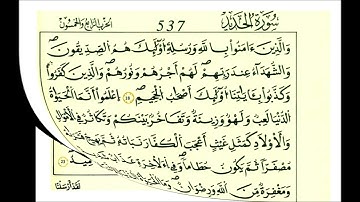 سُورَةُ الْحَدِيدِ 537 الحزب الرابع والخمسون
وَالَّذِينَ ءَامَنُوا بِاللَّهِ وَرُسُلِهِ أُوْلَٰٓئِكَ هُمُ الصِّدِّيقُونَ
وَالشُّهَدَآءُ عِندَ رَبِّهِمْ لَهُمْ أَجْرُهُمْ وَنُورُهُمْ وَالَّذِينَ كَفَرُوا
وَكَذَّبُوا بِـَٔايَٰتِنَآ أُوْلَٰٓئِكَ أَصْحَٰبُ الْجَحِيمِ 18 اعْلَمُوا أَنَّمَا الْحَيَوٰةُ
الدُّنْيَا لَعِبٌ وَلَهْوٌ وَزِينَةٌ وَتَفَاخُرٌ بَيْنَكُمْ وَتَكَاثُرٌ فِي الْأَمْوَٰلِ
وَالْأَوْلَٰدِ كَمَثَلِ غَيْثٍ أَعْجَبَ الْكُفَّارَ نَبَاتُهُ ثُمَّ يَهِيجُ
مُصْفَرًّا ثُمَّ يَكُونُ حُطَٰمًا وَفِي الْأَخِرَةِ
وَمَغْفِرَةٌ مِّنَ اللَّهِ وَرِضْوَٰنٌ